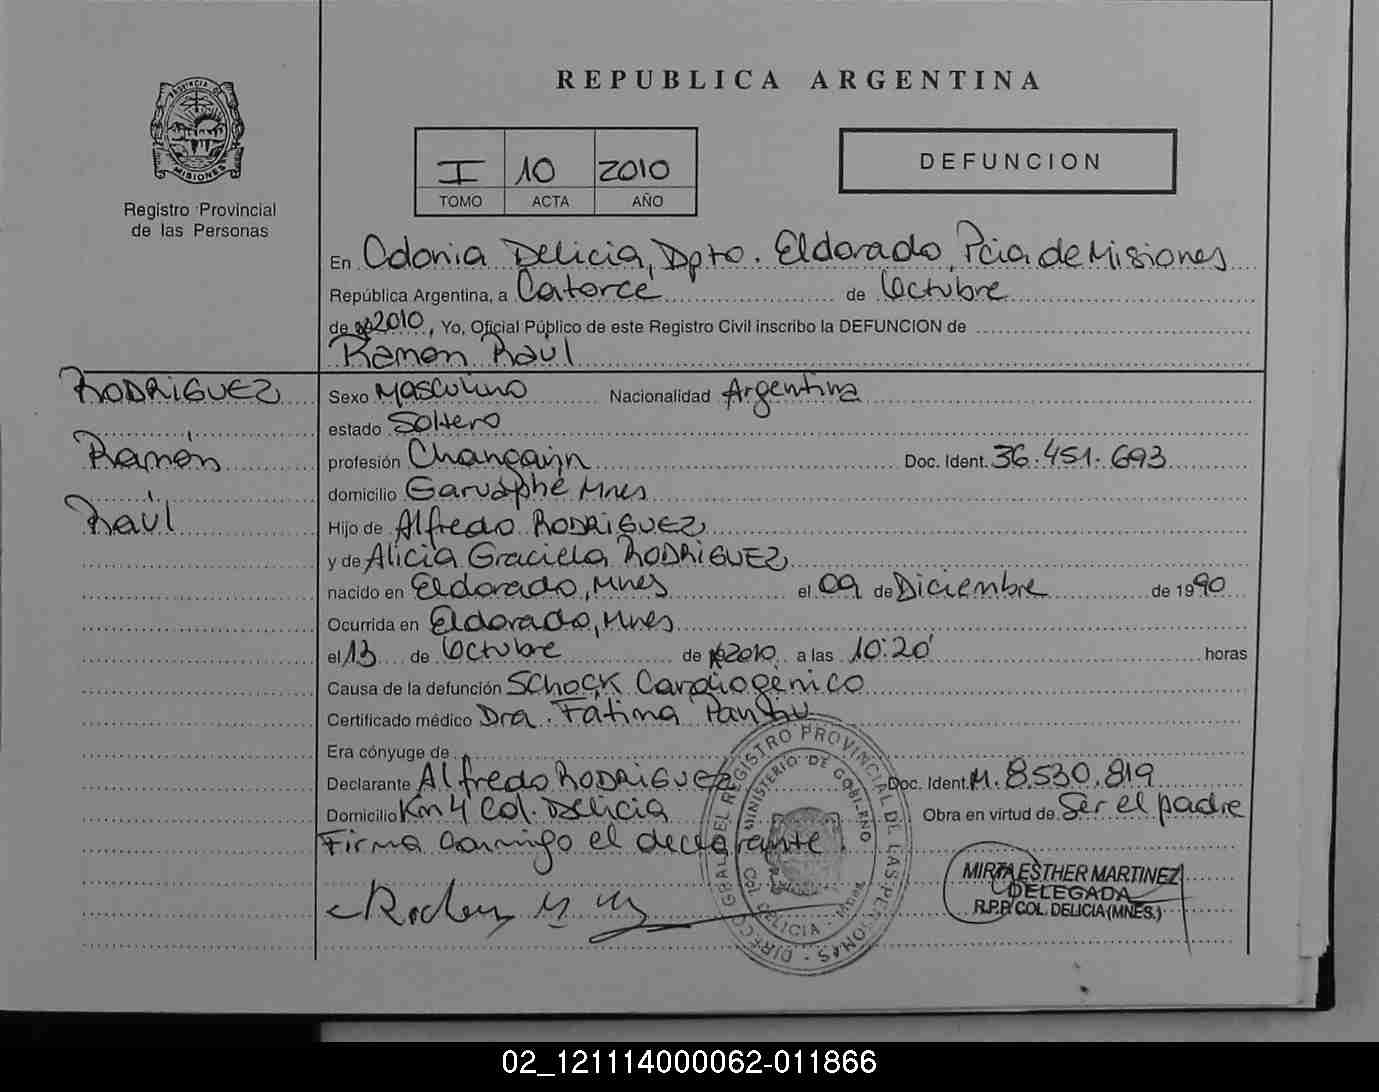 REPUBLICA ARGENTINA
PROVINCIA DE MISIONES
Registro Provincial
de las Personas
I 10 2010
TOMO ACTA AÑO
DEFUNCION
En Colonia Delicia, Dpto. Eldorado, Pcia de Misiones
República Argentina, a Catorce de Octubre
de 2010, Yo, Oficial Público de este Registro Civil inscribo la DEFUNCION de
Ramón Raúl
RODRIGUEZ
Ramón
Raúl
Sexo Masculino Nacionalidad Argentina
estado Soltero
profesión Doc. Ident. 36.451.693
domicilio Garuaphé Mnes
Hijo de Alfredo RODRIGUEZ
y de Alicia Graciela RODRIGUEZ
nacido en Eldorado, Mnes el 09 de Diciembre de 1990
Ocurrida en Eldorado, Mnes
el 13 de Octubre de 2010 a las 10:20' horas
Causa de la defunción Schock Cardiogénico
Certificado médico Dra. Fátima
Era cónyuge de
Declarante Alfredo RODRIGUEZ Doc. Ident. M. 8.530.819
Domicilio Km 4 Col. Delicia Obra en virtud de Ser el padre
Firma conmigo el declarante
DIRECC. GRAL. DEL REGISTRO PROVINCIAL DE LAS PERSONAS
MINISTERIO DE GOBIERNO
COL. DELICIA - Mnes
MIRTA ESTHER MARTINEZ
DELEGADA
R.P.P. COL. DELICIA (MNES.)
02_121114000062-011866